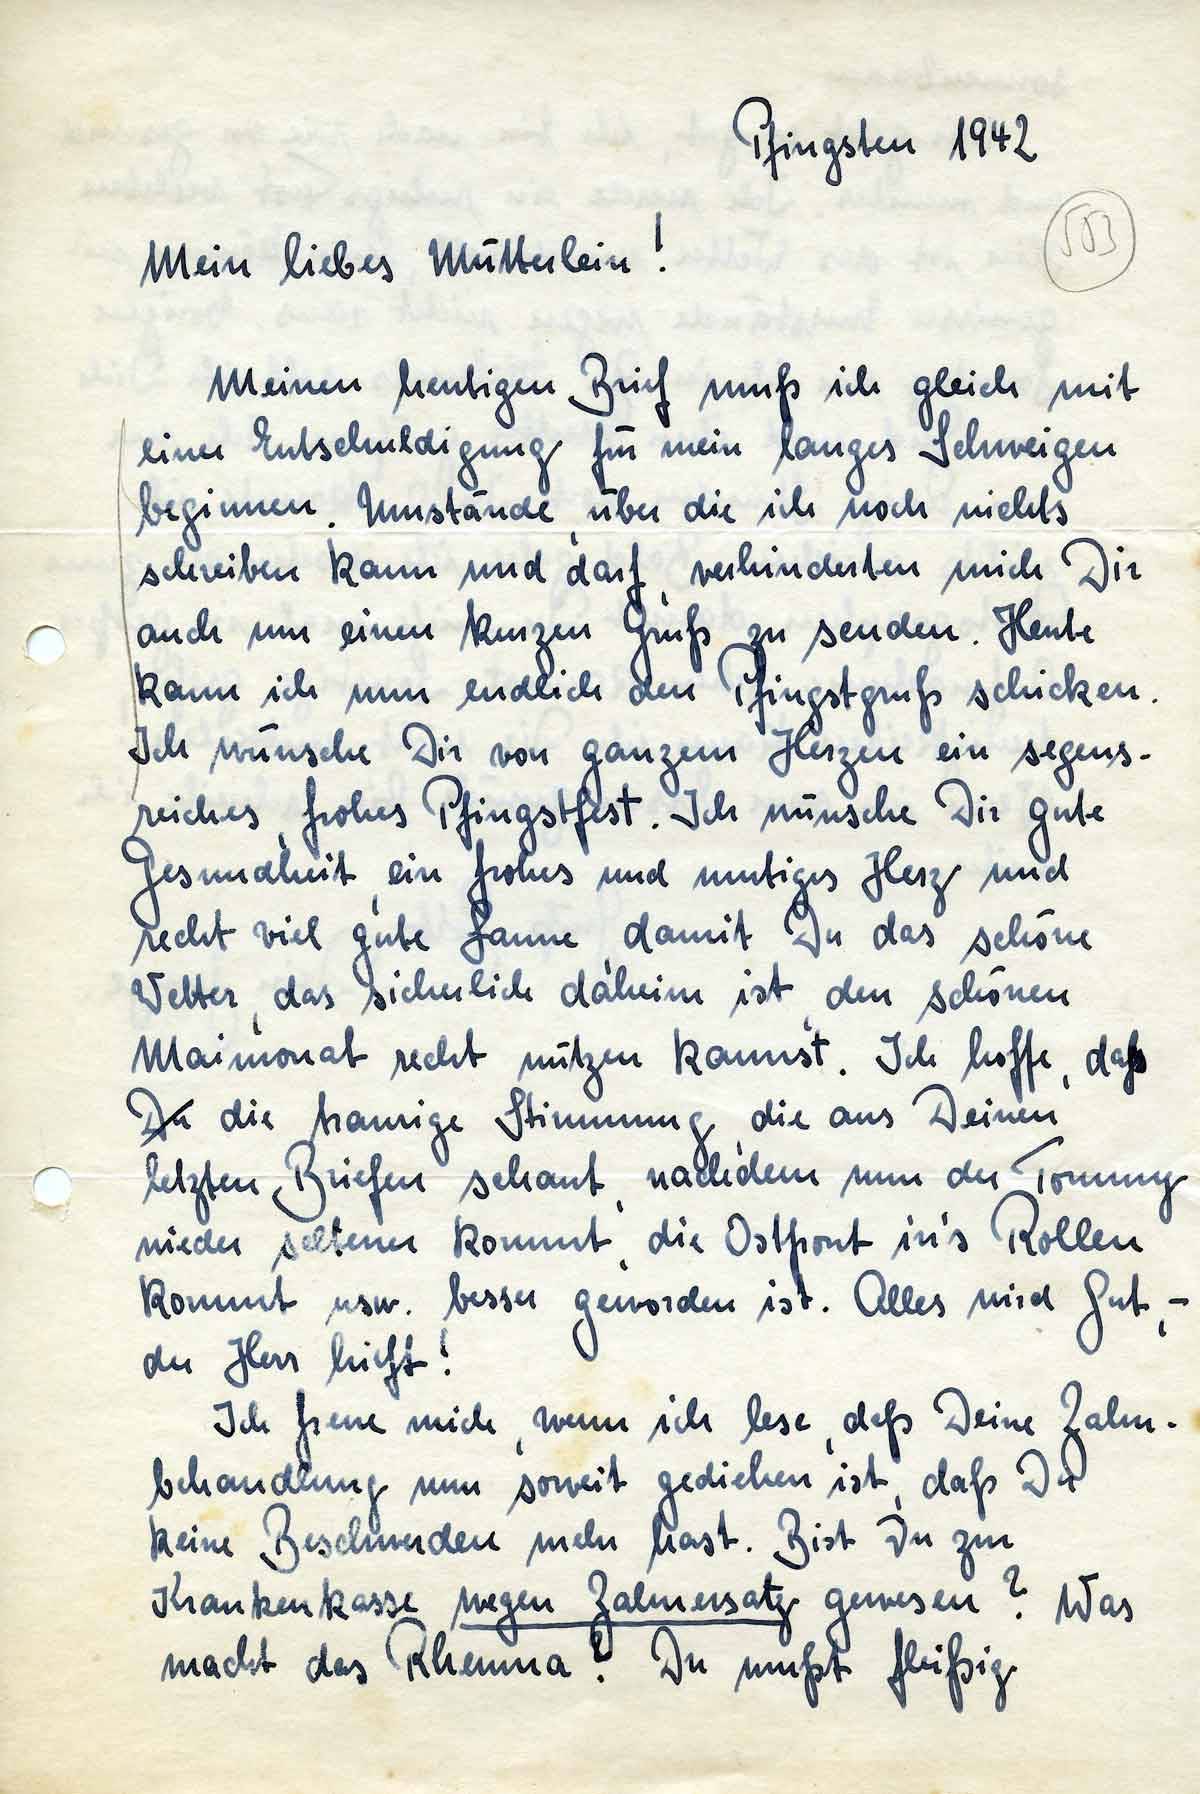 Pfingsten 1942
503
Mein liebes Mütterlein!
Meinen heutigen Brief muß ich gleich mit
einer Entschuldigung für mein langes Schweigen
beginnen. Umstände, über die ich noch nichts
schreiben kann und darf, verhinderten mich Dir
auch nur einen kurzen Gruß zu senden. Heute
kann ich nun endlich den Pfingstgruß schicken.
Ich wünsche Dir von ganzem Herzen ein segens-
reiches, frohes Pfingstfest. Ich wünsche Dir gute
Gesundheit, ein frohes und mutiges Herz und
recht viel gute Laune, damit Du das schöne
Wetter, das sicherlich daheim ist, den schönen
Maimonat recht nützen kannst. Ich hoffe, daß
Du die traurige Stimmung, die aus Deinen
letzten Briefen schaut, nachdem nun der Tommy
wieder seltener kommt, die Ostfront in's Rollen
kommt usw. besser geworden ist. Alles wird Gut, –
der Herr hilft!
Ich freue mich, wenn ich lese, daß Deine Zahn-
behandlung nun soweit gediehen ist, daß Du
keine Beschwerden mehr hast. Bist Du zur
Krankenkasse wegen Zahnersatz gewesen? Was
macht das Rheuma? Du mußt fleißig